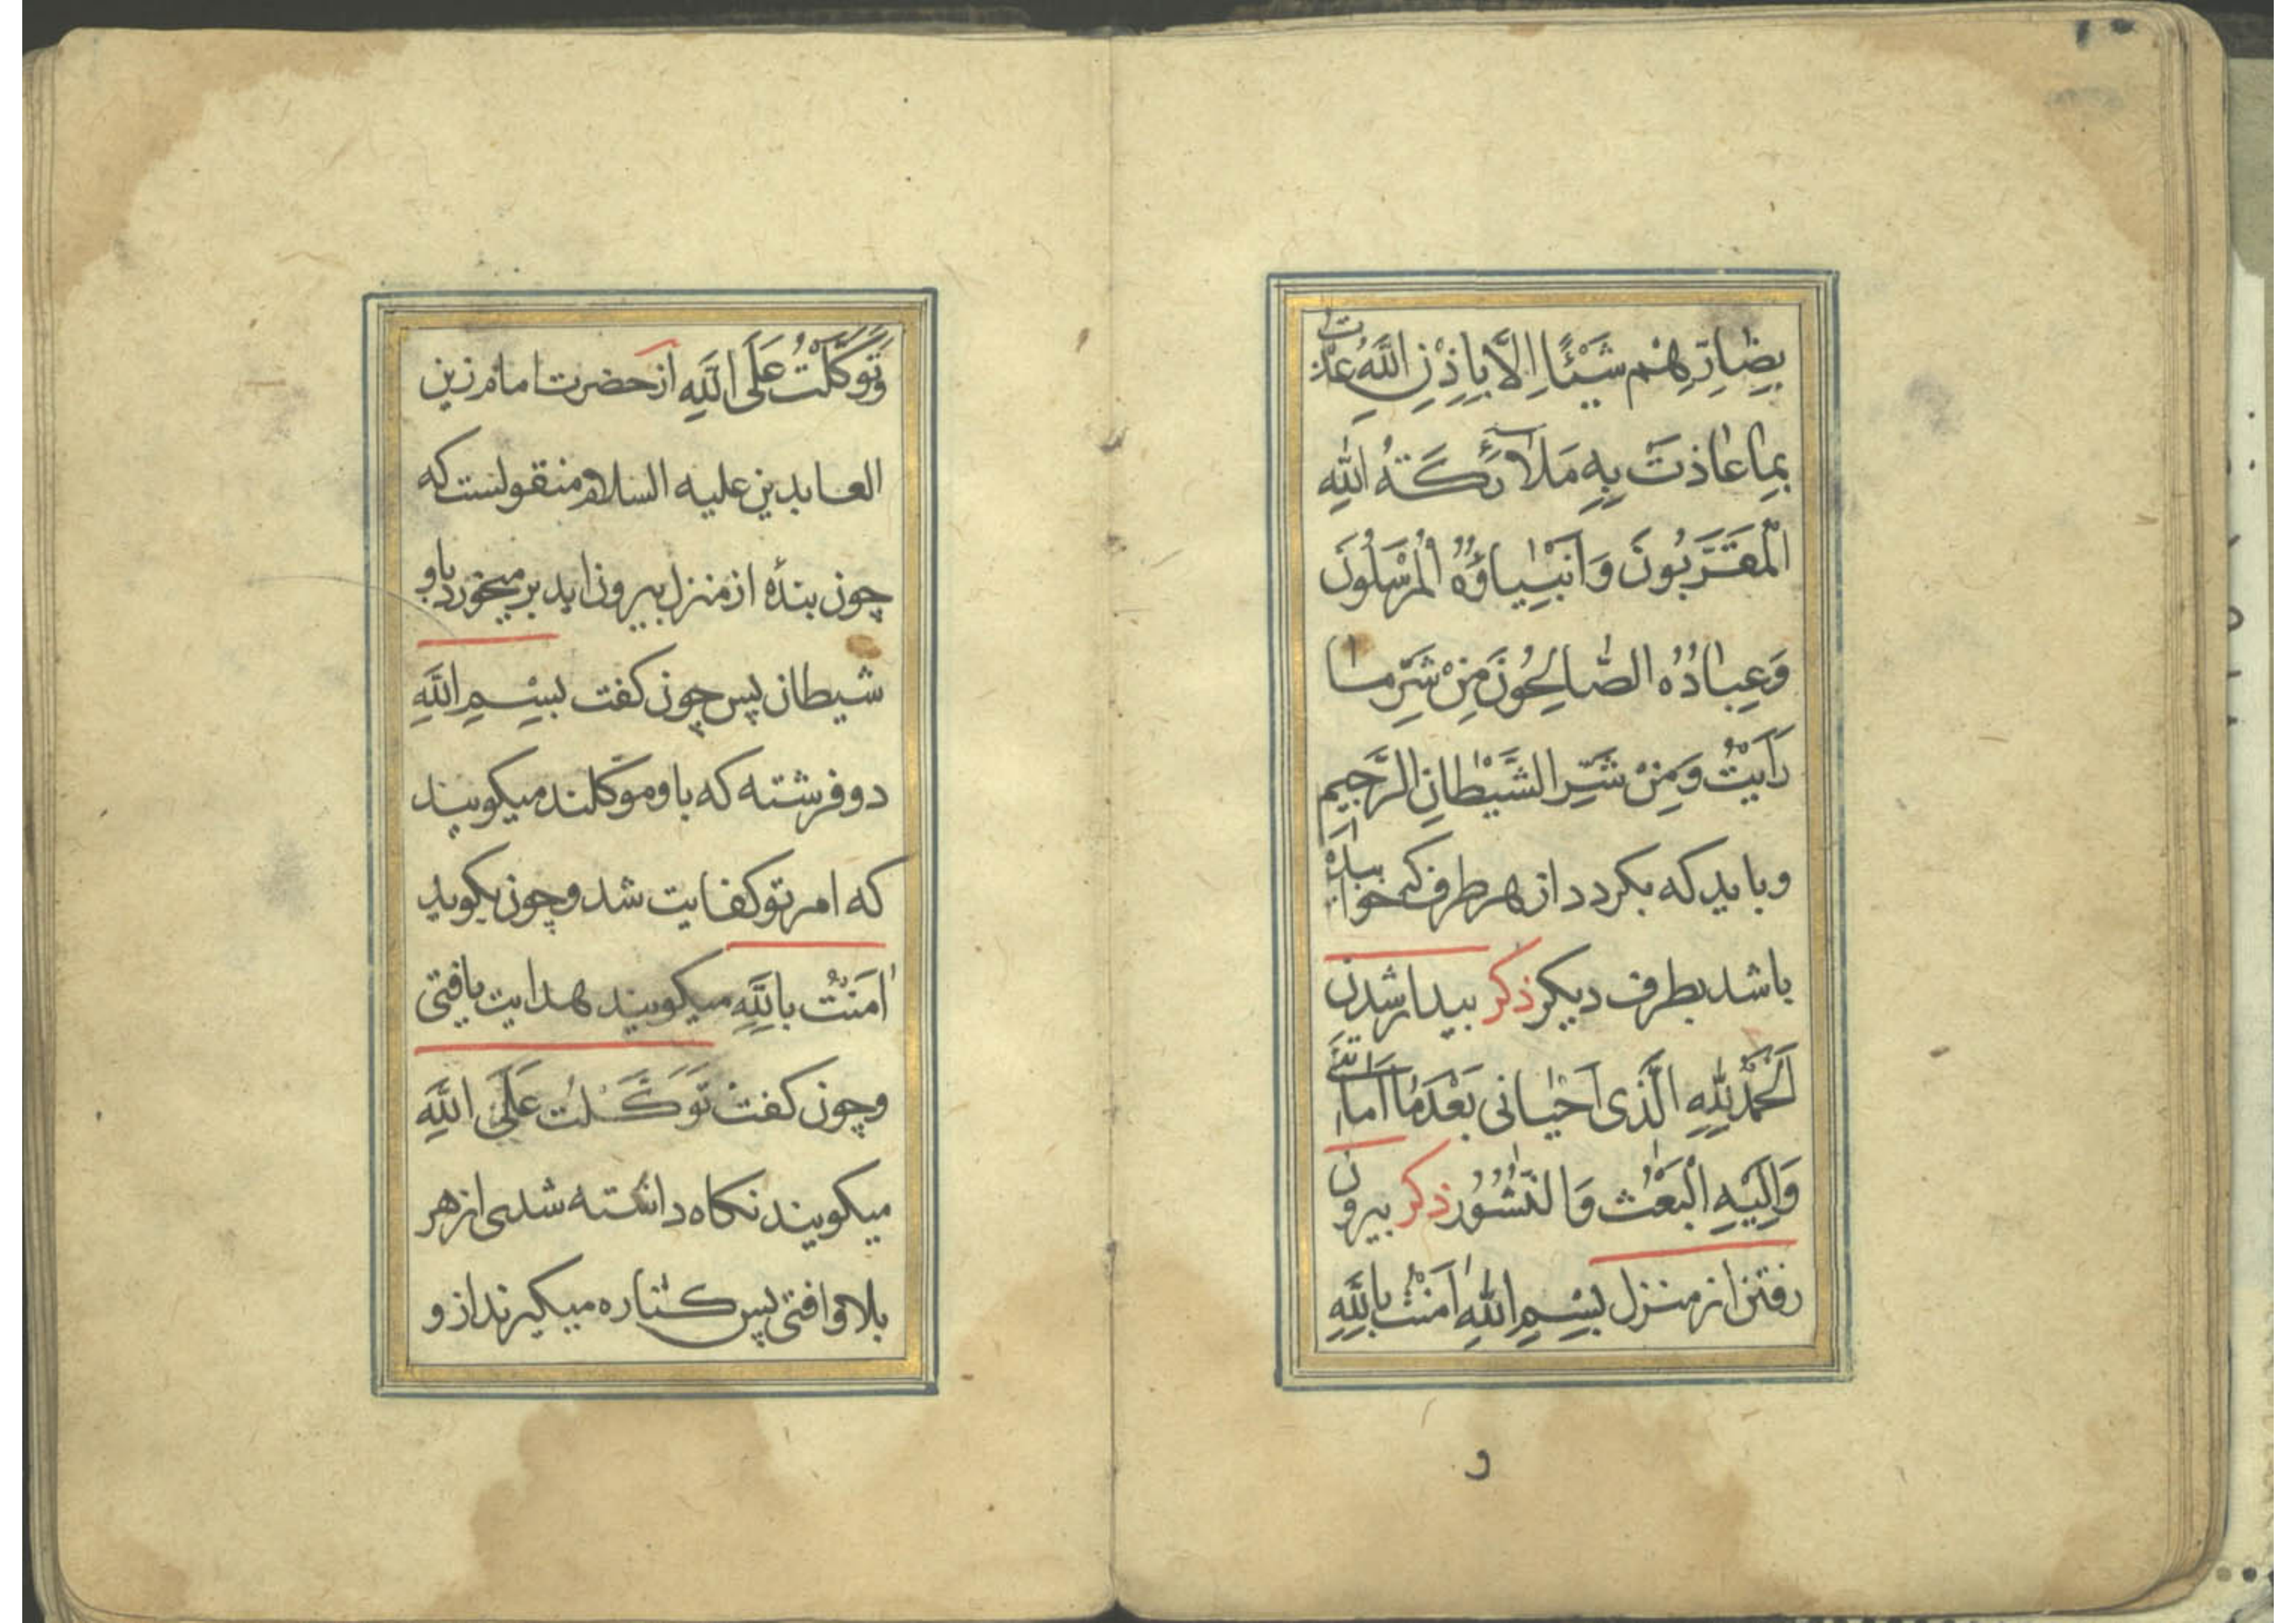 بِضٰارِّهِمْ شَيْئًا اِلَّا بِاِذْنِ اللّٰهِ عُذْتُ
بِمٰا عٰاذَتْ بِهِ مَلٰآئِكَةُ اللّٰهِ
الْمُقَرَّبُونَ وَ اَنْبِيٰاؤُهُ الْمُرْسَلُونَ
وَ عِبٰادُهُ الصّٰالِحُونَ مِنْ شَرِّ مٰا
رَاَيْتُ وَ مِنْ شَرِّ الشَّيْطٰانِ الرَّجِيمِ
و بايد كه بكردد از هر طرف كه خوابيده
باشد بطرف ديكر ذكر بيدار شدن
اَلْحَمْدُ لِلّٰهِ الَّذى اَحْيٰانى بَعْدَ مٰا اَمٰاتَنى
وَ اِلَيْهِ الْبَعْثُ وَ النُّشُورُ ذكر بيرون
رفتن از منزل بِسْمِ اللّٰهِ اٰمَنْتُ بِاللّٰهِ
و
وَ تَوَكَّلْتُ عَلَى اللّٰهِ از حضرت امام زين
العابدين عليه السلام منقولست كه
چون بندۀ از منزل بيرون ايد بر ميخورد باو
شيطان پس چون كفت بِسْمِ اللّٰهِ
دو فرشته كه باو موكلند ميكويند
كه امر تو كفايت شد و چون بكويد
اٰمَنْتُ بِاللّٰهِ ميكويند هدايت يافتى
و چون كفت تَوَكَّلْتُ عَلَى اللّٰهِ
ميكويند نكاه داشته شدى از هر
بلا و افتى پس كناره ميكيرند از و